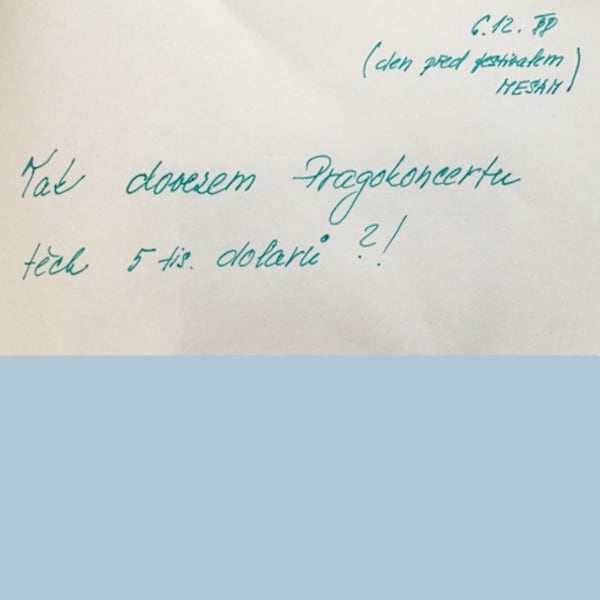 6.12. 88
(den před festivalem
MESAM)
Tak dovezem Pragokoncertu
těch 5 tis. dolarů ?!